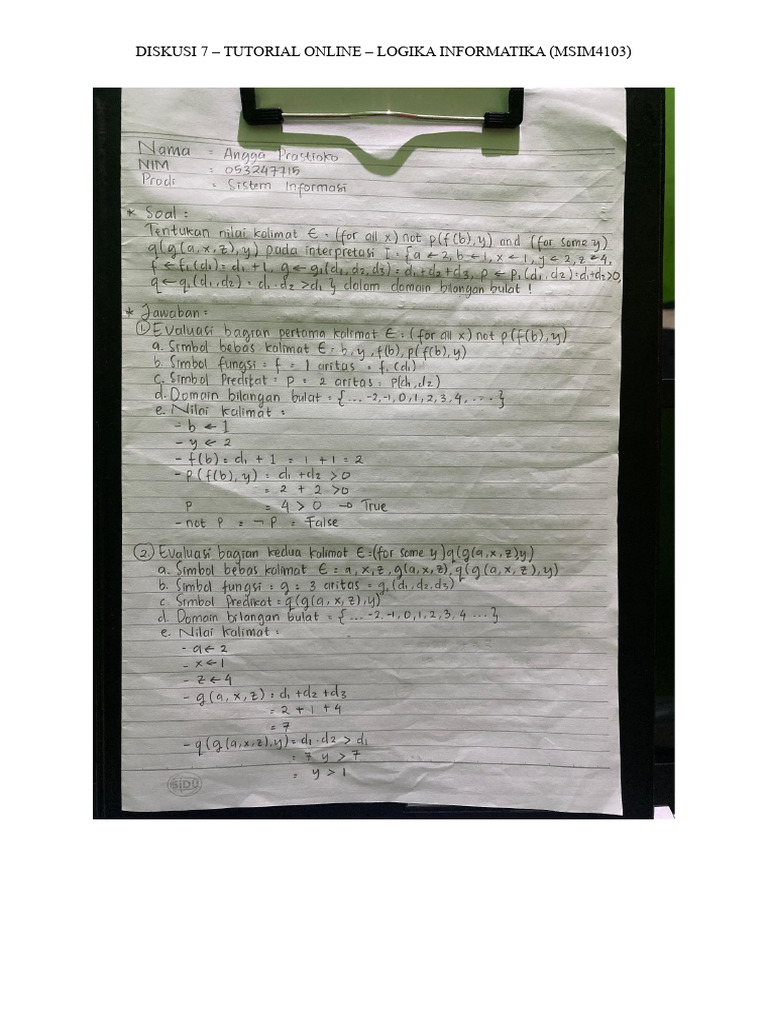 DISKUSI 7 – TUTORIAL ONLINE – LOGIKA INFORMATIKA (MSIM4103)
Nama : Angga Prastioko
NIM : 053247715
Prodi : Sistem Informasi
* Soal :
Tentukan nilai kalimat E = (for all x) not p(f(b),y) and (for some y)
q(g(a,x,z),y) pada interpretasi I = {a ← 2, b ← 1, x ← 1, y ← 2, z ← 4,
f ← f₁(d₁) = d₁ + 1, g ← g₁(d₁, d₂, d₃) = d₁ + d₂ + d₃, p ← p₁(d₁, d₂) = d₁+d₂>0,
q ← q₁(d₁, d₂) = d₁ . d₂ > d₁ } dalam domain bilangan bulat !
* Jawaban :
1. Evaluasi bagian pertama kalimat E = (for all x) not p(f(b),y)
a. Simbol bebas kalimat E = b, y, f(b), p(f(b),y)
b. Simbol fungsi = f = 1 aritas = f₁(d₁)
c. Simbol Predikat = P = 2 aritas = P(d₁,d₂)
d. Domain bilangan bulat = {... -2,-1, 0, 1, 2, 3, 4, ....}
e. Nilai kalimat :
- b ← 1
- y ← 2
- f(b) = d₁ + 1 = 1 + 1 = 2
- P(f(b),y) = d₁ + d₂ > 0
= 2 + 2 > 0
P = 4 > 0 → True
- not P = ¬ P = False
2. Evaluasi bagian kedua kalimat E = (for some y) q(g(a,x,z)y)
a. Simbol bebas kalimat E = a, x, z, g(a,x,z), q(g(a,x,z),y)
b. Simbol fungsi = g = 3 aritas = g₁(d₁,d₂,d₃)
c. Simbol Predikat = q(g(a,x,z),y)
d. Domain bilangan bulat = {... -2, -1, 0, 1, 2, 3, 4 ....}
e. Nilai kalimat :
- a ← 2
- x ← 1
- z ← 4
- g(a,x,z) = d₁ + d₂ + d₃
= 2 + 1 + 4
= 7
- q(g(a,x,z),y) = d₁ . d₂ > d₁
= 7 y > 7
= y > 1
SiDU